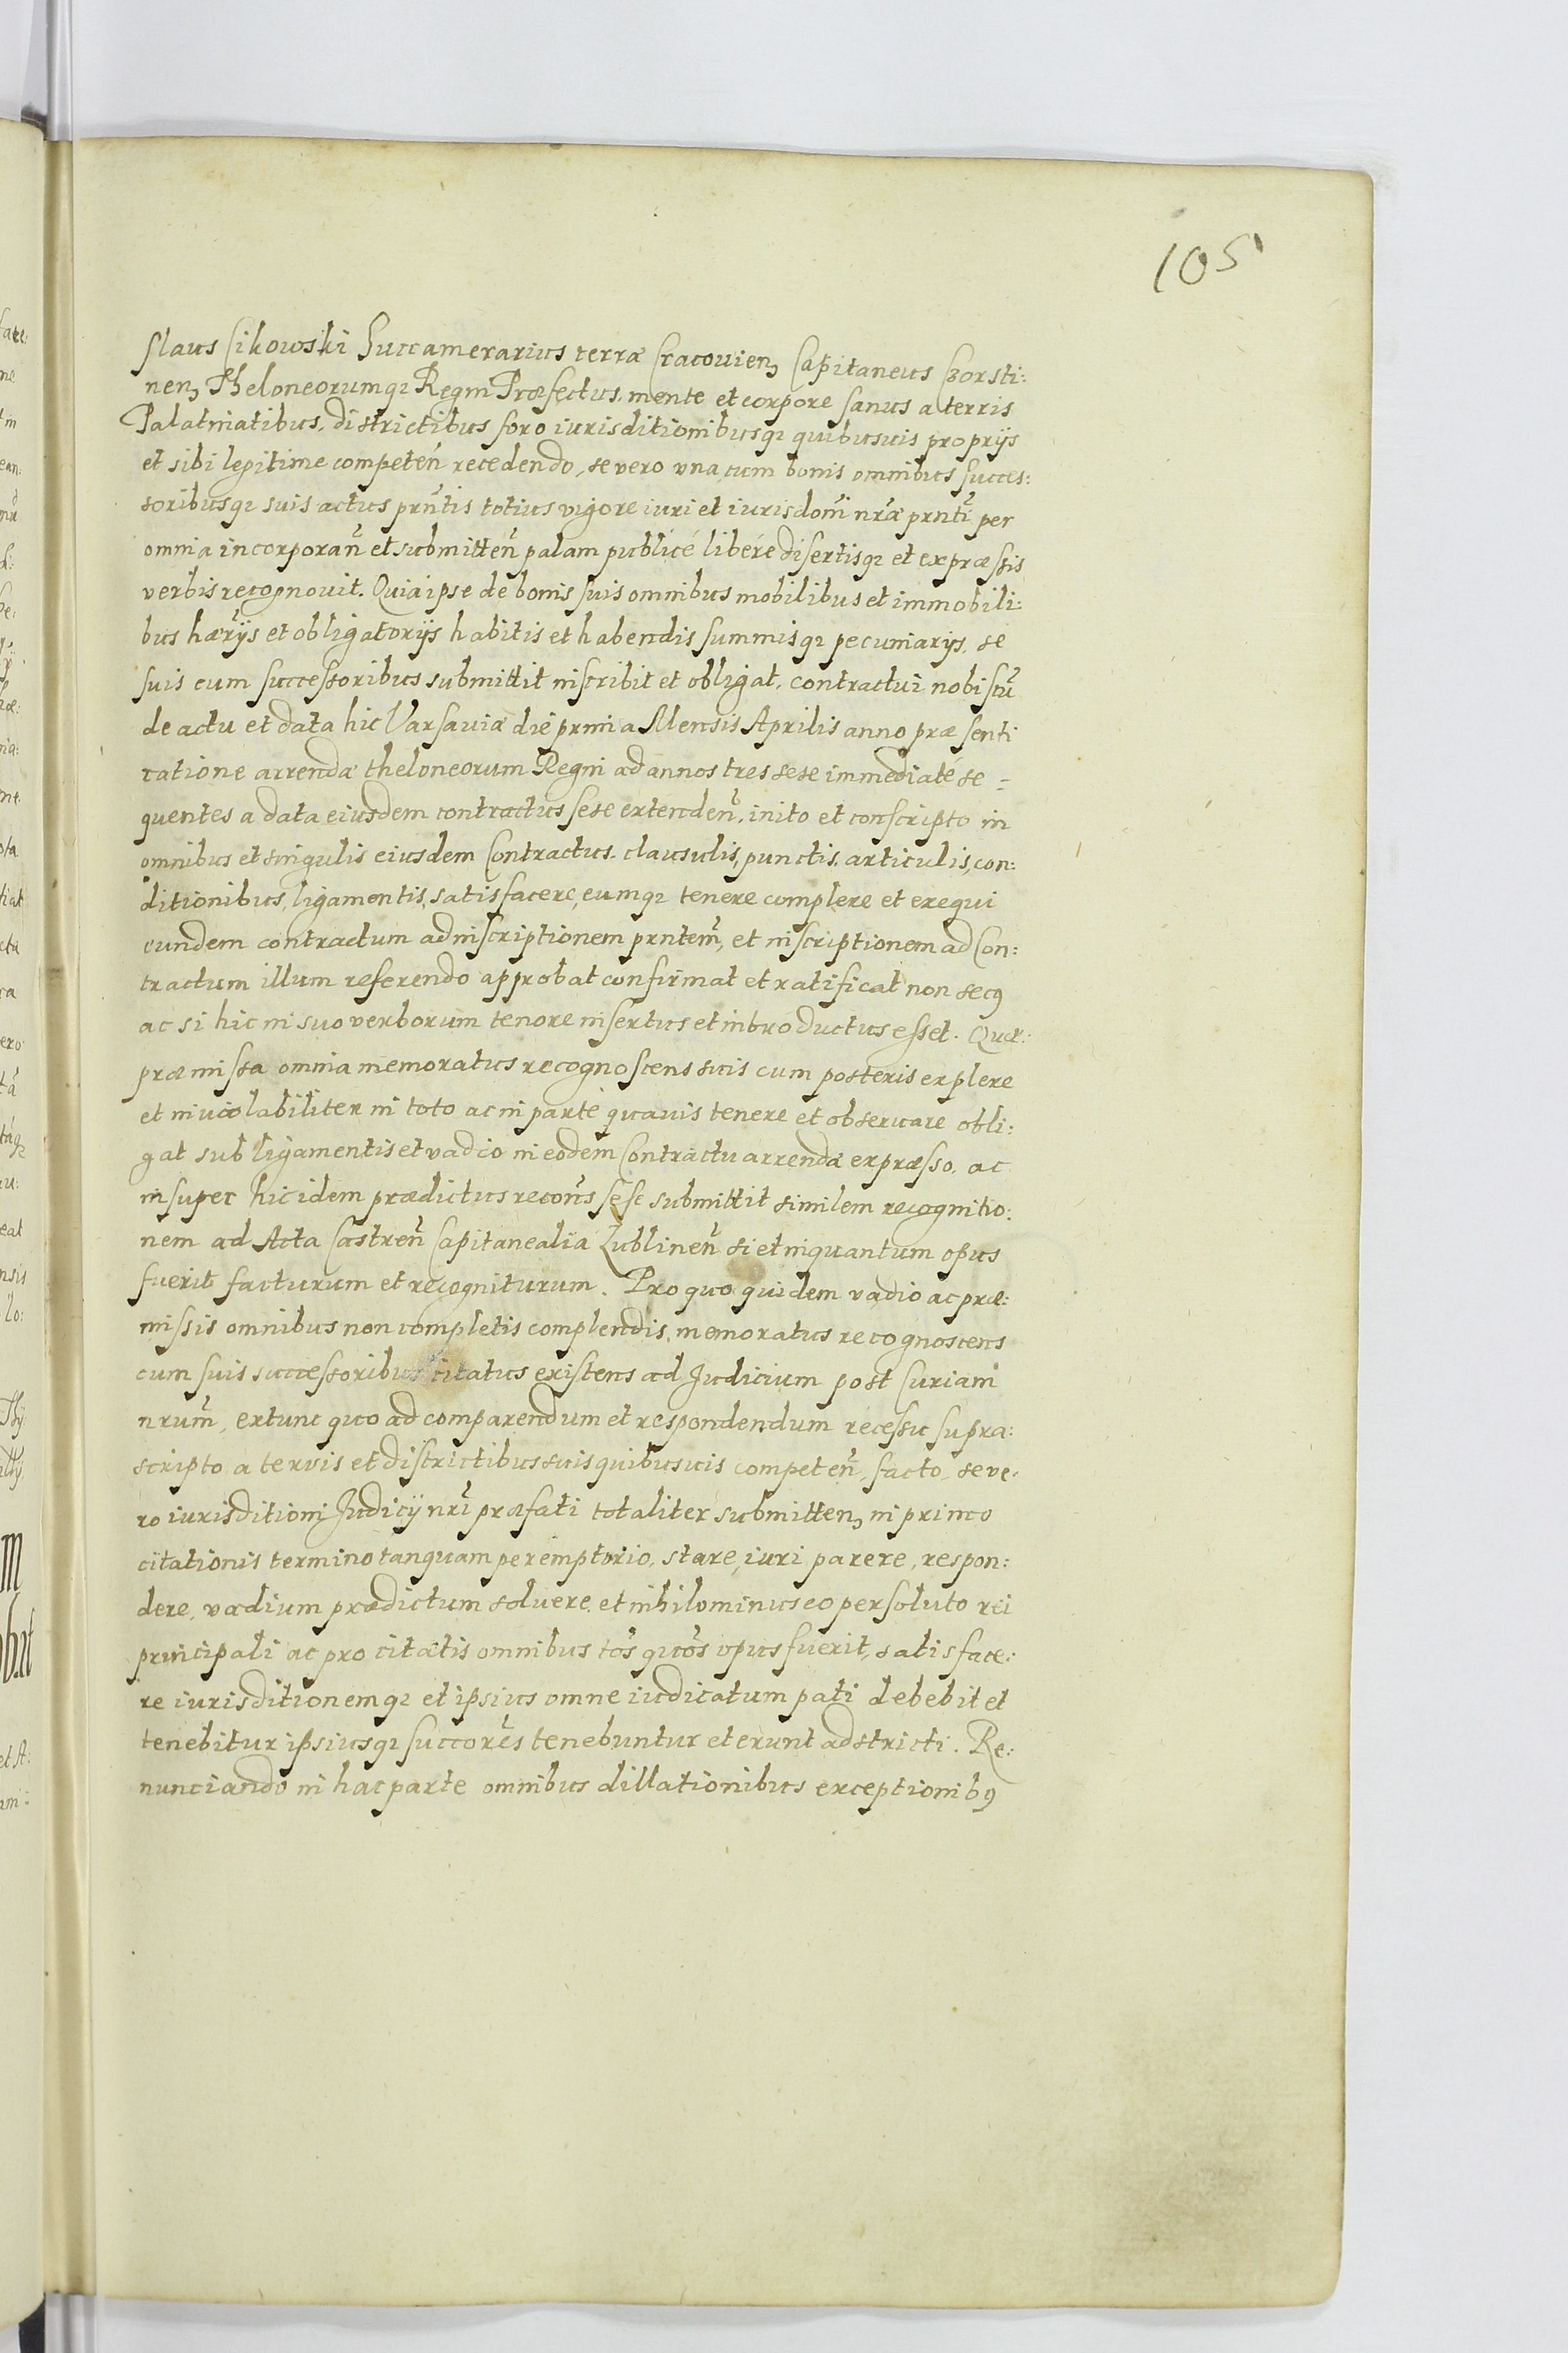 105
slaus Cikowski Succamerarius terræ Cracouien̄ Capitaneus Czorsti:
nen̄ Theloneorumq₃ Regni Præfectus. mente et corpore sanus a terris
Palatinatibus, districtibus foro iurisditionibusq₃ quibusuis proprijs
et sibi legitime competen̄ recedendo, se vero vna cum bonis omnibus succes:
soribusq₃ suis actus prn̄tis totius vigore iuri et iurisdom̄ nr̄æ prnt̄i per
omnia incorporan̄ et submitten̄ palam publicé liberé disertisq₃ et expræssis
verbis recognouit. Quia ipse de bonis suis omnibus mobilibus et immobili:
bus hær̄ijs et obligatorijs habitis et habendis summisq₃ pecuniarijs, se
suis cum successoribus submittit inscribit et obligat, contractui nobiscū
de actu et data hic Varsauiæ die prima Mensis Aprilis anno præsenti
ratione arrendæ theloneorum Regni ad annos tres sese immediaté se=
quentes a data eiusdem contractus sese extenden̄, inito et conscripto in
omnibus et singulis eiusdem Contractus clausulis, punctis, articulis, con:
ditionibus, ligamentis, satisfacere, eumq₃ tenere complere et exequi
eundem contractum ad inscriptionem prntem̄, et inscriptionem ad Con:
tractum illum referendo approbat confirmat et ratificat non secꝰ
ac si hic in suo verborum tenore insertus et introductus esset. Quæ:
præmissa omnia memoratus recognoscens suis cum posteris explere
et inuiolabiliter in toto ac in parte quauis tenere et obseruare obli:
gat sub ligamentis et vadio in eodem Contractu arrendæ expræsso, ac
insuper hic idem prædictus recon̄s sese submittit similem recognitio:
nem ad Acta Castren̄ Capitanealia Lublinen̄ si et inquantum opus
fuerit facturum et recogniturum. Pro quo quidem vadio ac præ:
missis omnibus non completis complendis, memoratus recognoscens
cum suis successoribus citatus existens ad Judicium post Curiam
nrum̄, extunc quo ad comparendum et respondendum recessu supra:
scripto a terris et districtibus suis quibusuis competen̄, facto, se ve:
ro iurisditioni Judicij nrī præfati totaliter submitten̄ in primo
citationis termino tanquam peremptorio, stare, iuri parere, respon:
dere, vadium prædictum soluere, et nihilominus eo persoluto rei
principali ac pro citatis omnibus tōs quōs opus fuerit, satisface:
re iurisditionemq₃ et ipsius omne iudicatum pati debebit et
tenebitur ipsiusq₃ succorēs tenebuntur et erunt adstricti. Re:
nunciando in hac parte omnibus dillationibus exceptionibꝰ